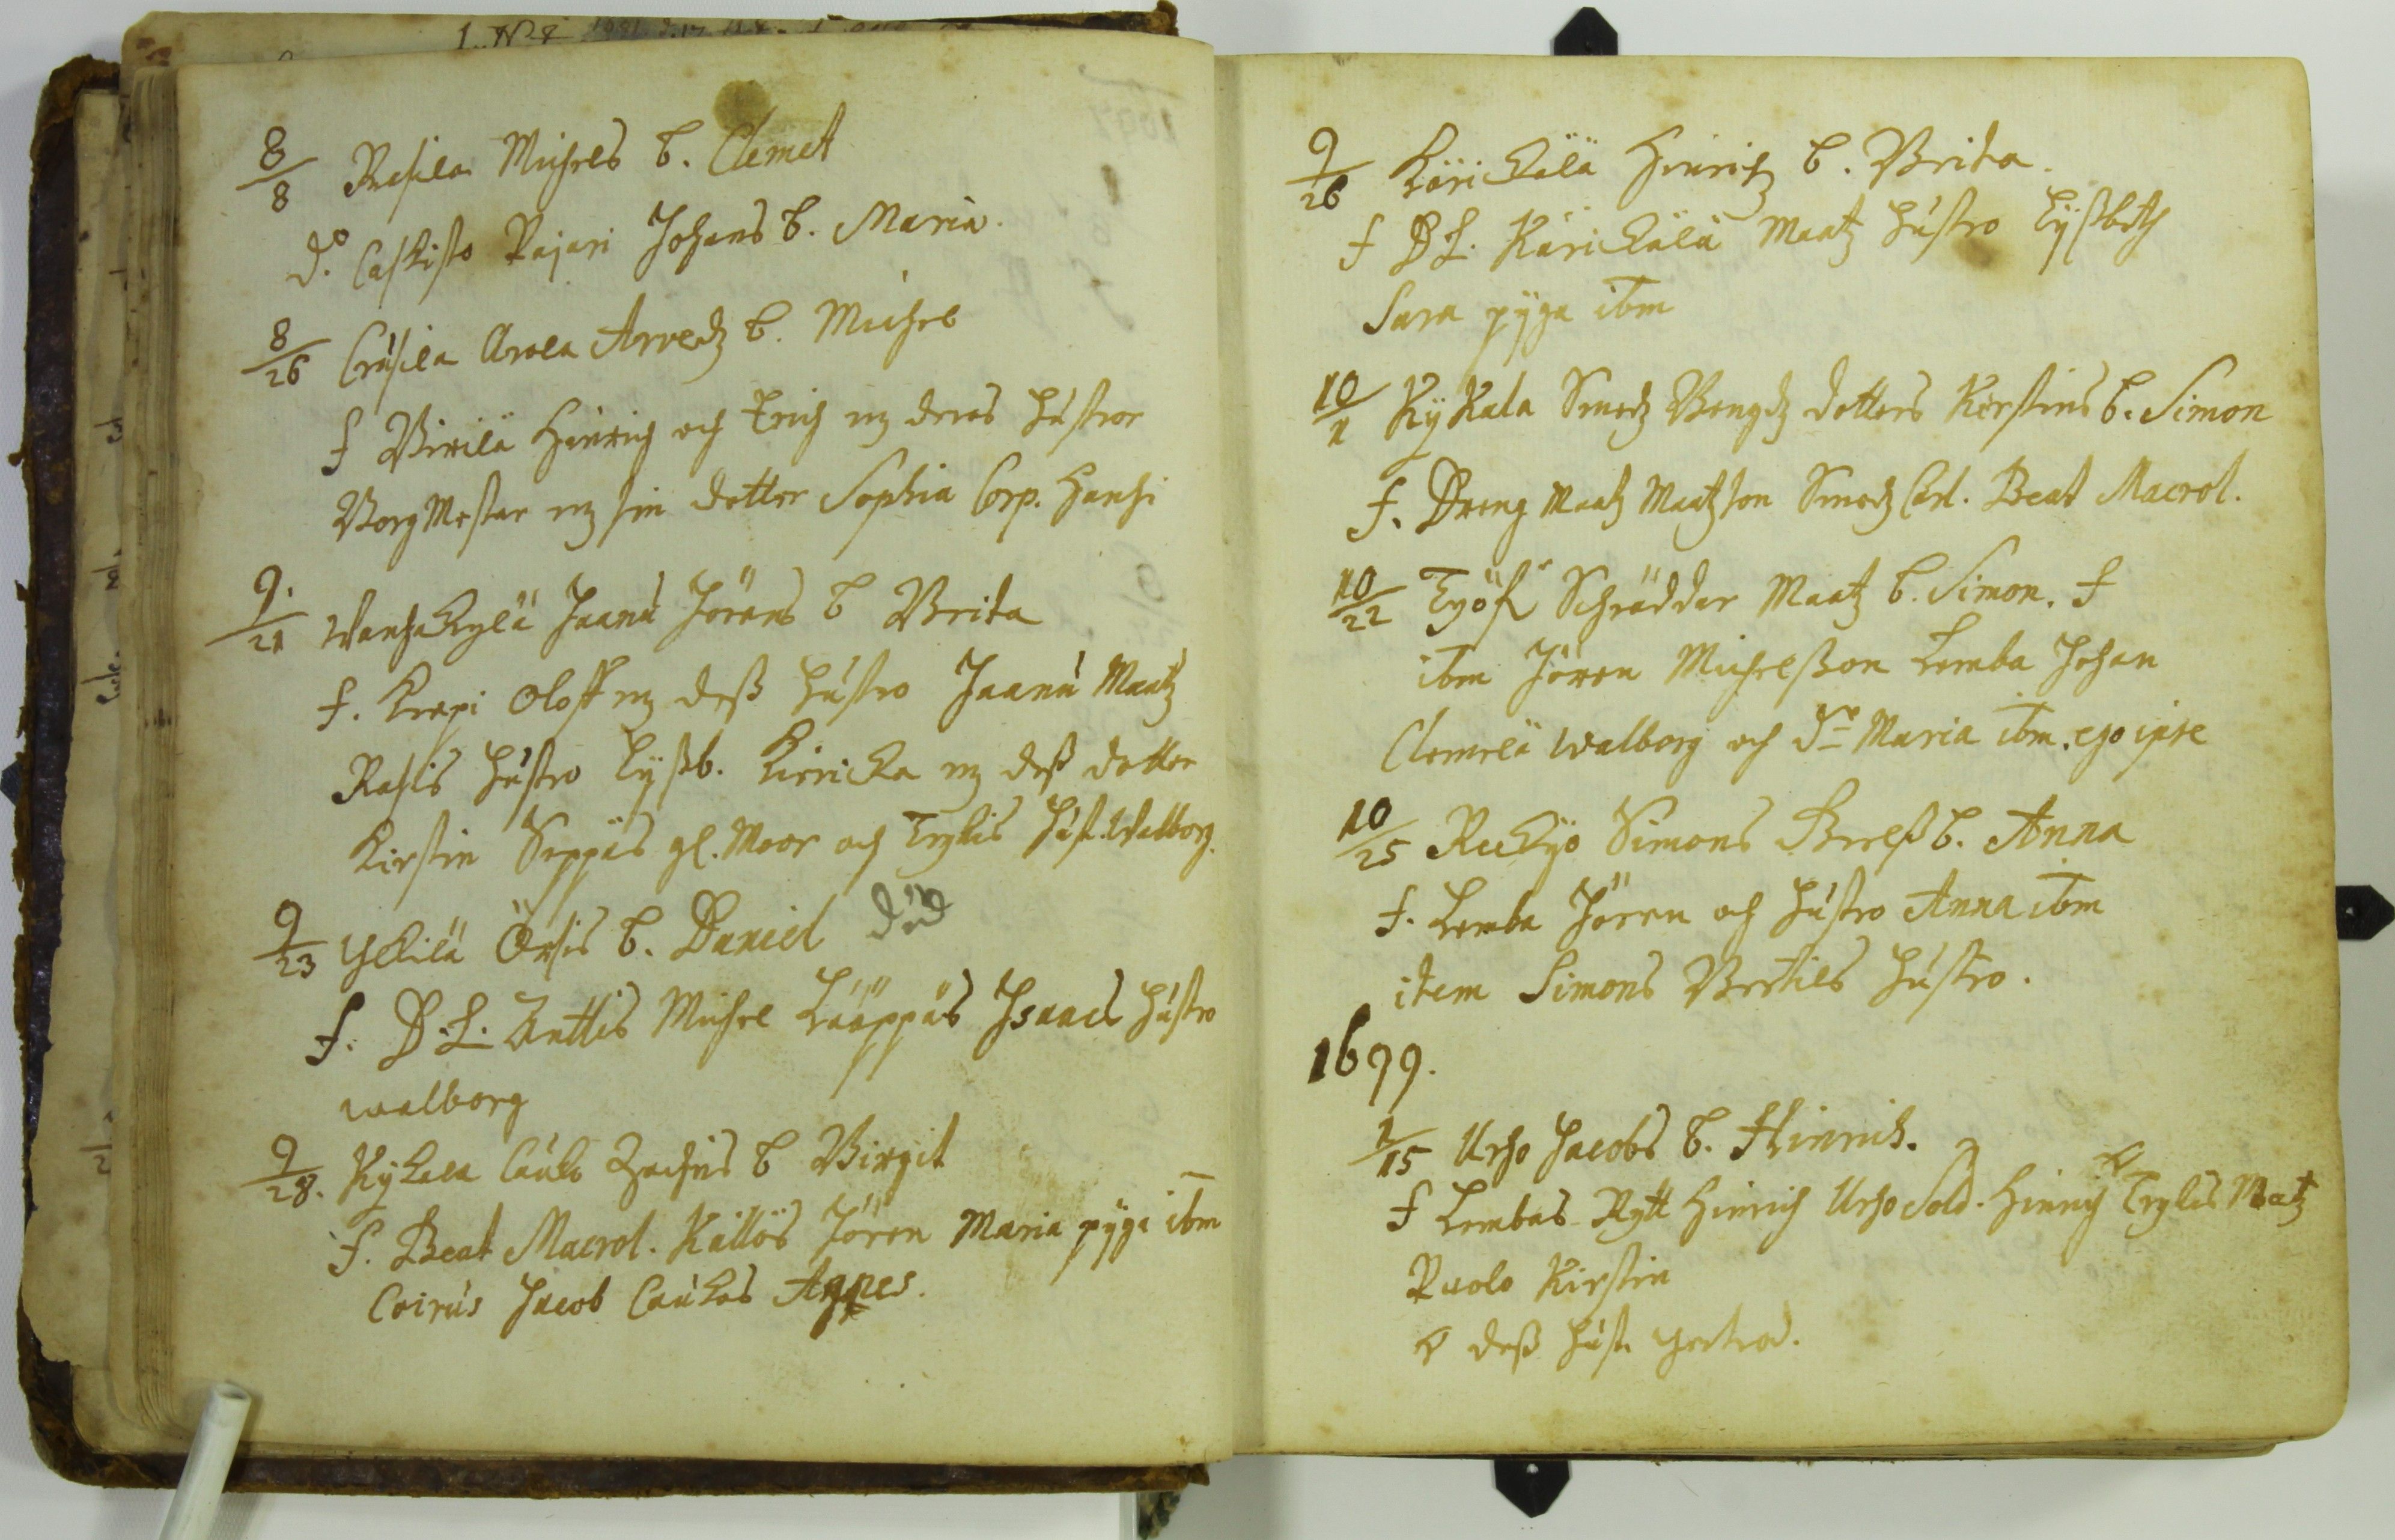 8/8 Rasila Michels b. Clemet
do Castisto Rajari Johans b. Maria.
8/26 Crusila Arola Arvedz b. Michel
f Virilä Hinrich och Erich m deras hustror
Borg Mestar m sin dotter Sophia Corp. Hanssi
9./21 Wanhakylä Jaanu Jörans b Brita
f. Krepi Oloff m dess hustro Jaanu Matz
Rasis hustro Lyssb. Kiericka m dess dotter
Kirstin Seppäs gl. Moor och Erkis hust. Walborg.
9/23 Yllilä Örsis b. Daniel död
f. D.L. Anttis Michel Lääppäs Isaacs hustro
walborg
9/28. Kykala Cauko Zachris b Birgit
f. Beat Macrol. Källös Jören Maria pyga ibm
Coirus Jacob Caukos Agnes.
9/26 Kärickälä Hinrichz b. Brita.
f D.L. Kärickälä Matz hustro Lyssbeth
Sara pyga ibm
10/1 Kykala Smedz Bengdz dotters Kirstins b. Simon
f. Dreng Matz Matzson Smedz Carl. Beat Macrol.
10/22 Schrädder Matz b. Simon. f
ibm Jören Michelsson Lemba Johan
Clemelä Walborg och Maria ibm. ego ipse
10/25 Reckyö Simons b. Anna
f. Lemba Jören och hustro Anna ibm
item Simons Bertils hustro.
1699.
1/15 Urho Jacobs b. Hinrich.
f Lembas Rytt Hinrich Urho Sold. Hinrich Matz
Kirstin
dess hust.